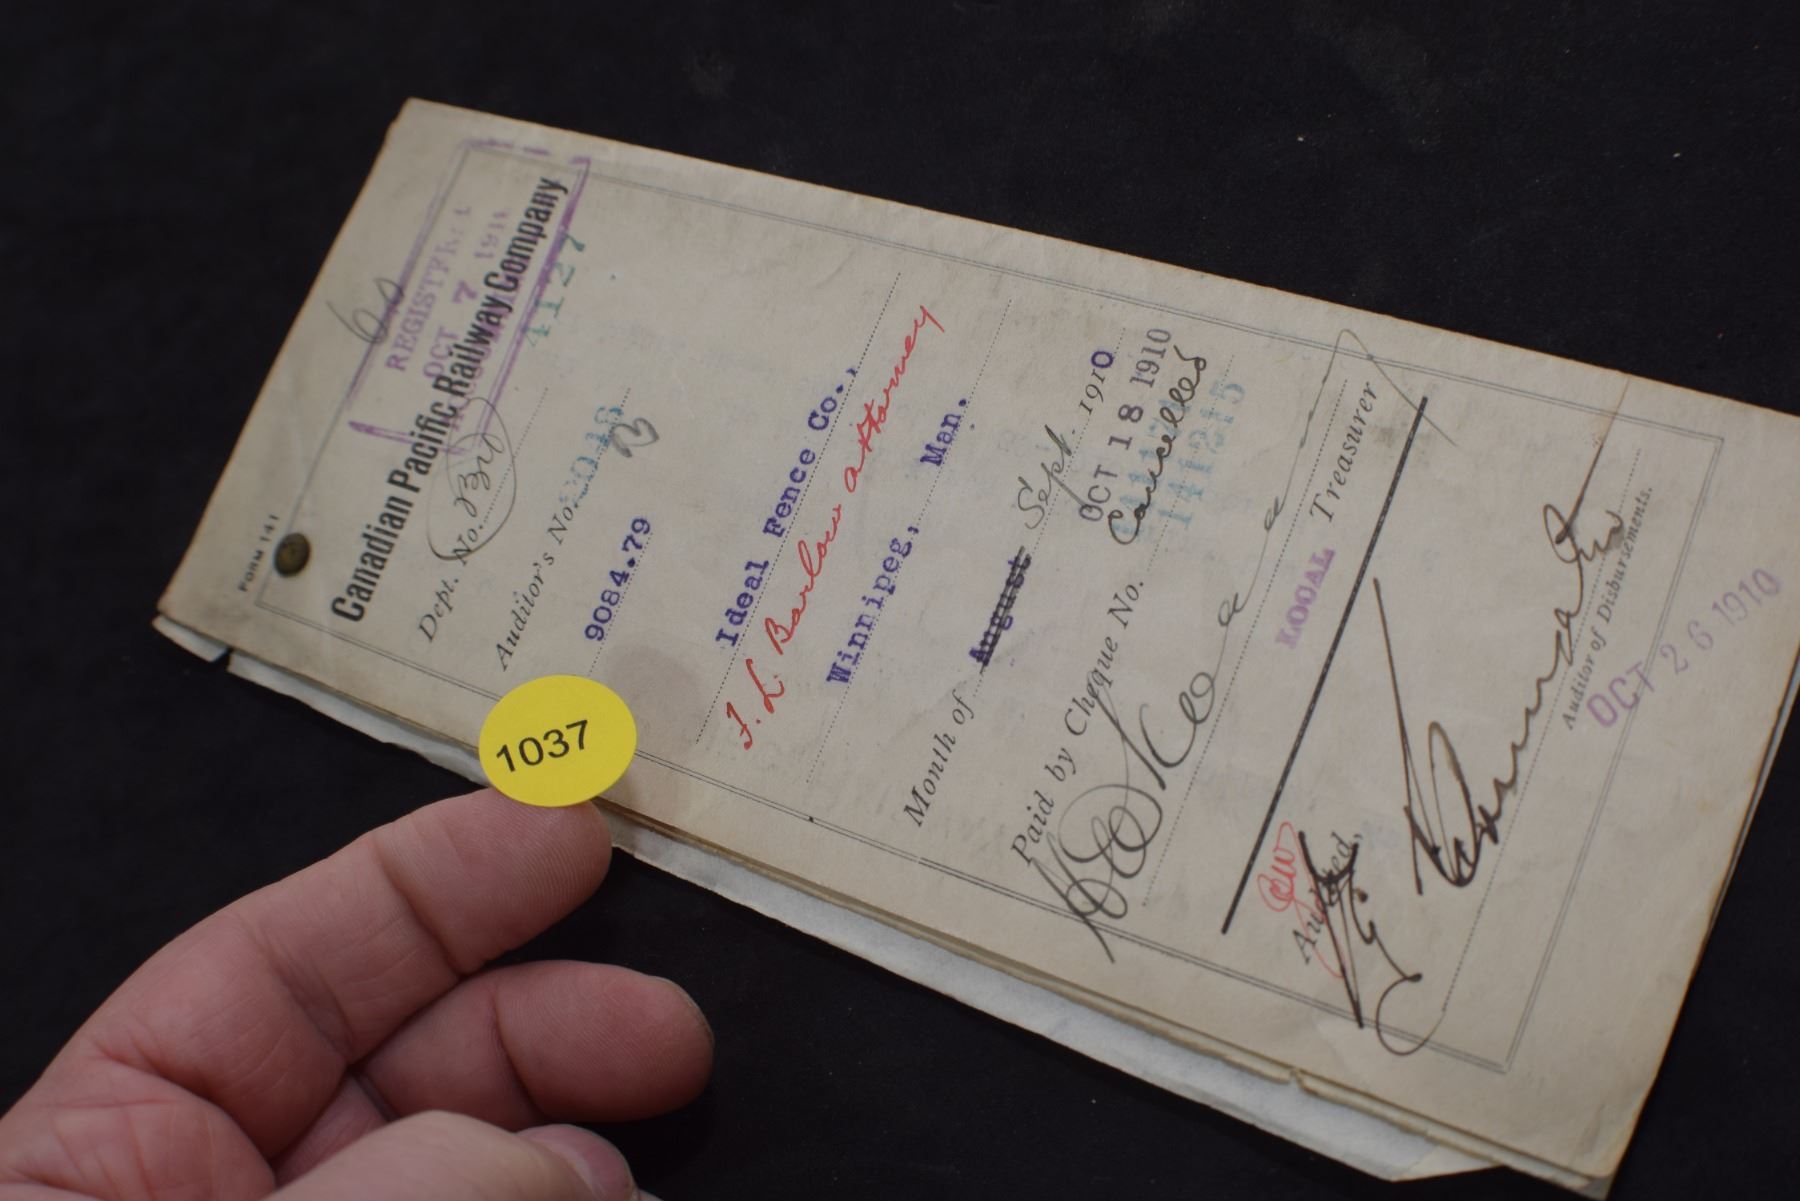 FORM 141
60
REGISTERED
OCT 7 191
Canadian Pacific Railway Company
4127
Dept. No.
Auditor's No.
B
9084.79
Ideal Fence Co.,
F. L. Barlow attorney
Winnipeg, Man.
Month of August Sept. 1910
OCT 18 1910
Paid by Cheque No. Cancelled
141215
LOCAL Treasurer
Audited,
Auditor of Disbursements.
OCT 26 1910
1037